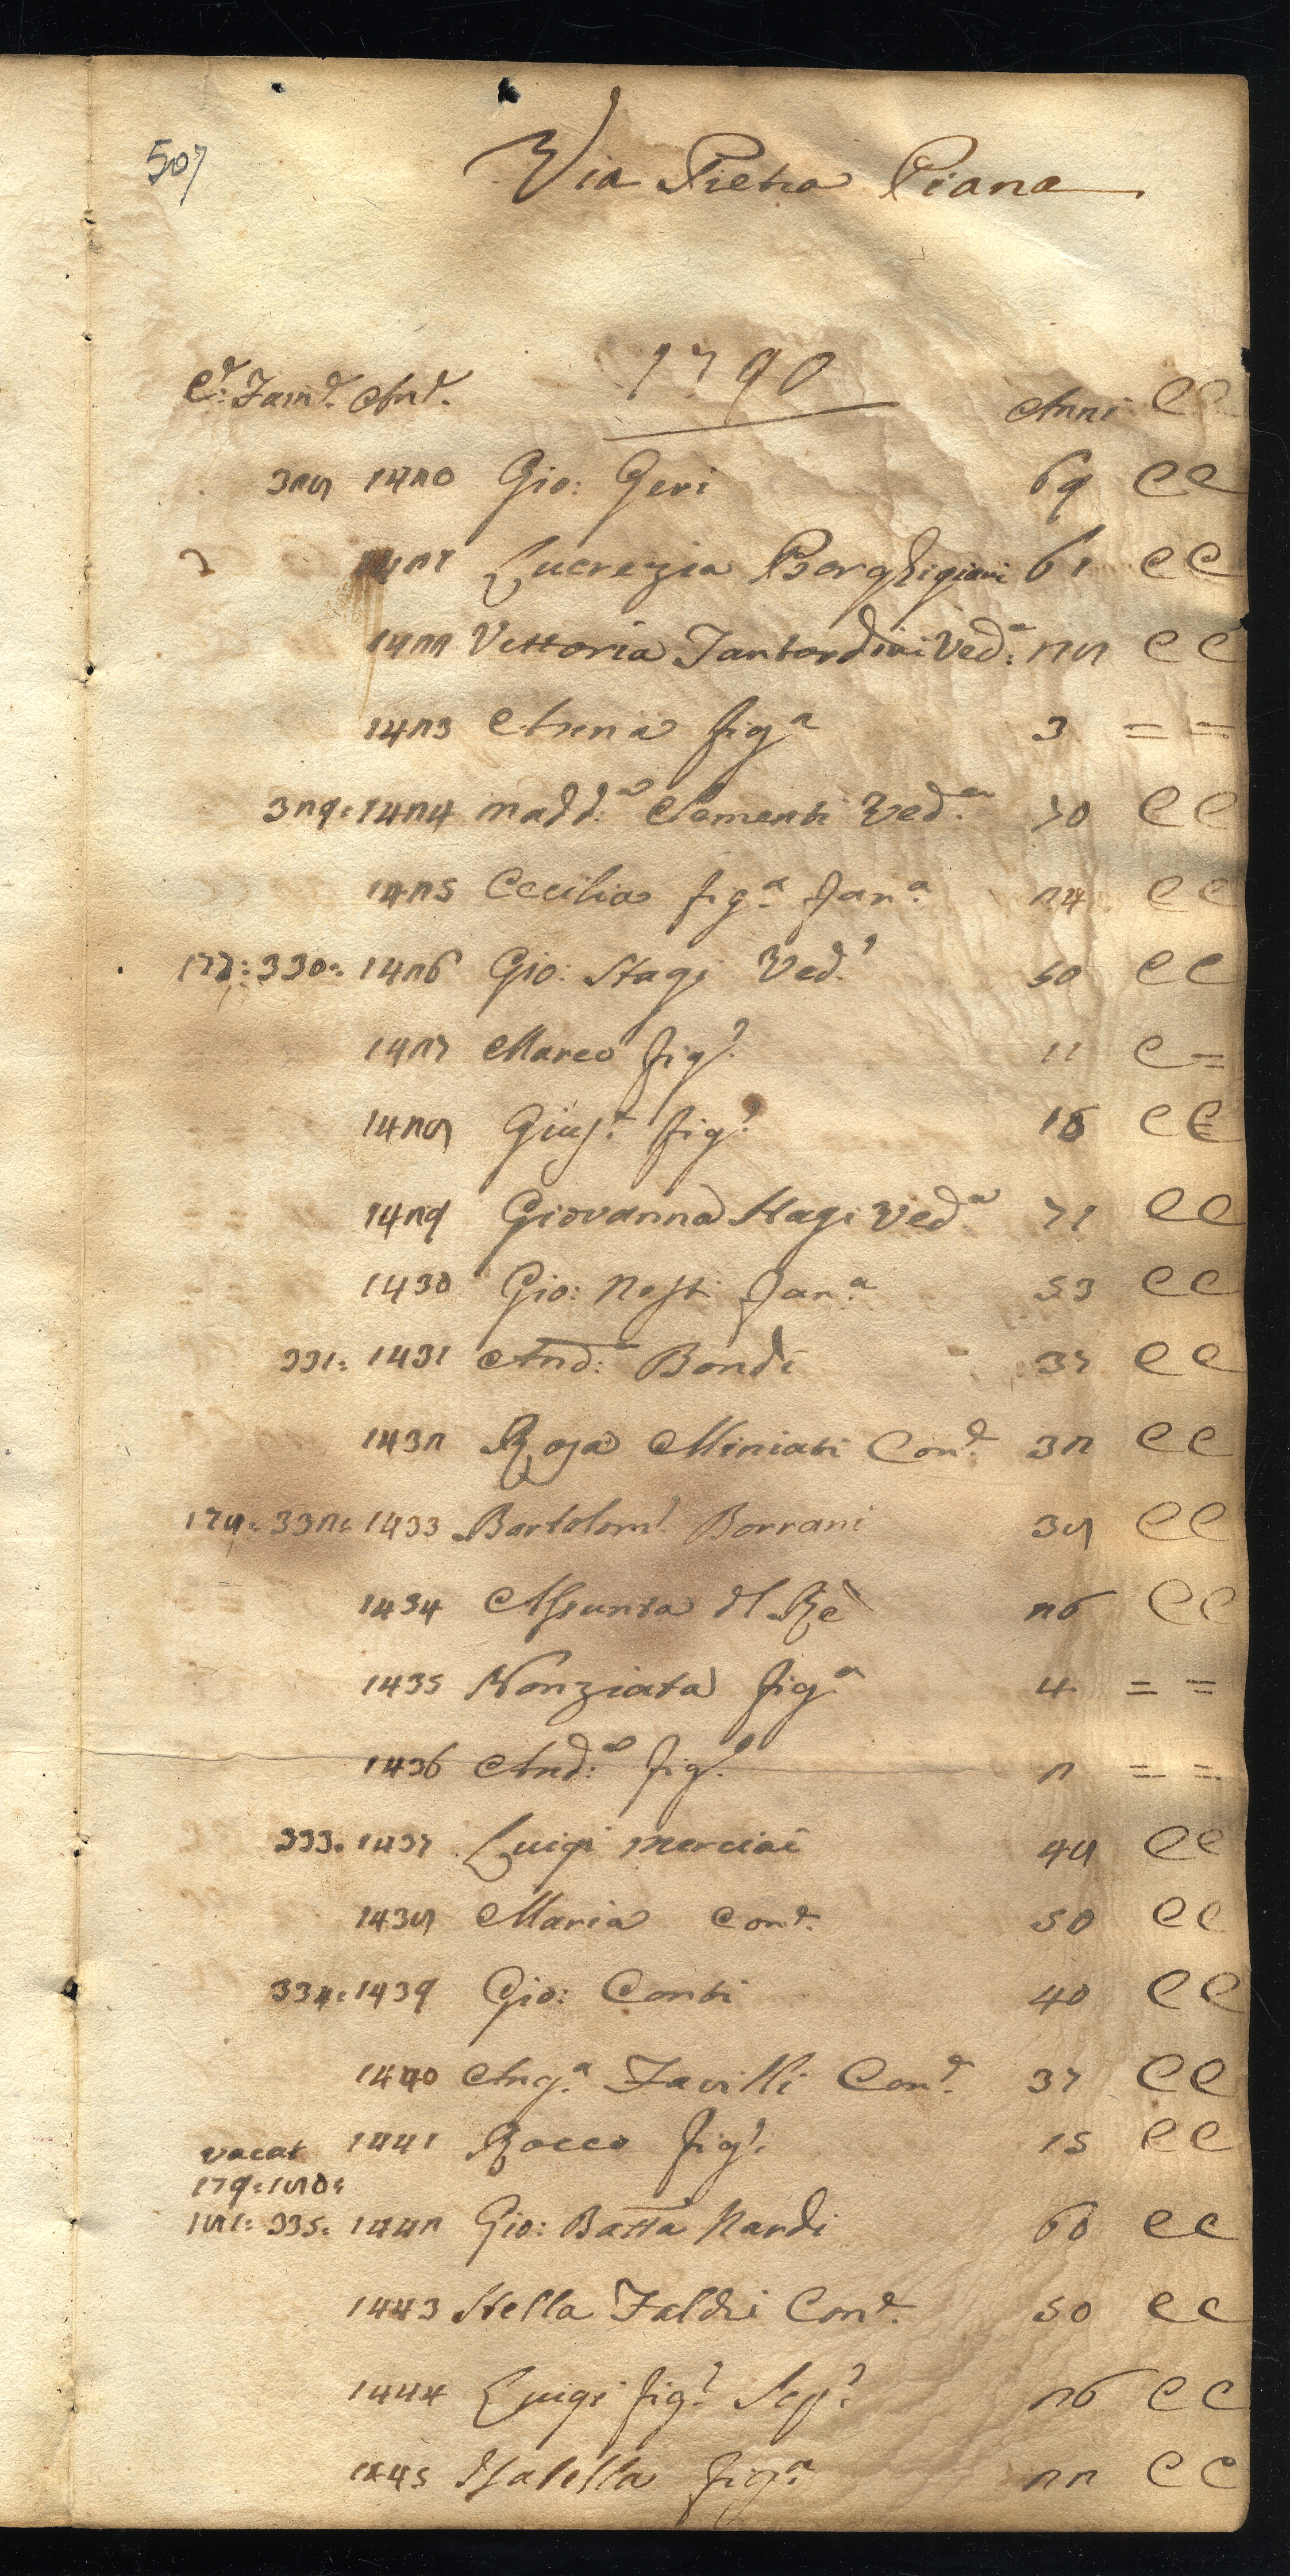 507
Via Pietra Piana
1790
C.e Fam.e An.e Anni C C
328 1420 Gio: Geri 69 C C
1421 Lucrezia Borghigiani 61 C C
1422 Vettoria Ved.a 28 C C
1423 Anna fig.a 3 = =
329: 1424 Madd.a Clementi Ved.a 70 C C
1425 Cecilia fig.a fan.a 24 C C
177: 330: 1426 Gio: Stagi Ved.o 50 C C
1427 Marco fig.o 11 C =
1428 Gius.e fig.o 18 C C
1429 Giovanna Stagi Ved.a 71 C C
1430 Gio: Nesti fan.a 53 C C
331: 1431 And.a Bondi 37 C C
1432 Rosa Miniati Con.e 32 C C
178: 332: 1433 Bartolom.o Borrani 38 C C
1434 Assunta dl Rè 26 C C
1435 Nonziata fig.a 4 = =
1436 And.a fig.o 2 = =
333: 1437 Luigi Merciai 48 C C
1438 Maria Con.e 50 C C
334: 1439 Gio: Conti 40 C C
1440 Ang.a Favilli Con.e 37 C C
vacat 1441 Rocco fig.o 15 C C
179: 180:
181: 335: 1442 Gio: Batta Nardi 60 C C
1443 Stella Faldi Con.e 50 C C
1444 Luigi fig.o 26 C C
1445 Isabella fig.a 22 C C